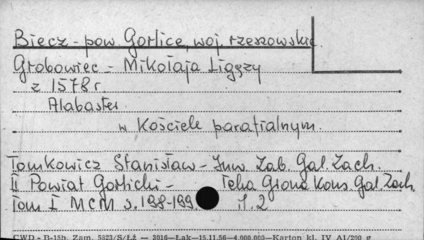 Biecz - pow Gorlice, woj. rzeszowskie
Grobowiec - Mikołaja Ligęzy
z 1578 r
Alabaster
w Kościele parafialnym.
Tomkowicz Stanisław - Inw. Zab. Gal. Zach.
II Powiat Gorlicki - Teka Grona Kons. Gal. Zach
Tom I MCM s. 198-199 il. 2
CWD - B-15b. Zam. 5523/S/ŁŻ — 3016—Łak—15.11.56—4.000.000—Karton kl. IV A1/250 g